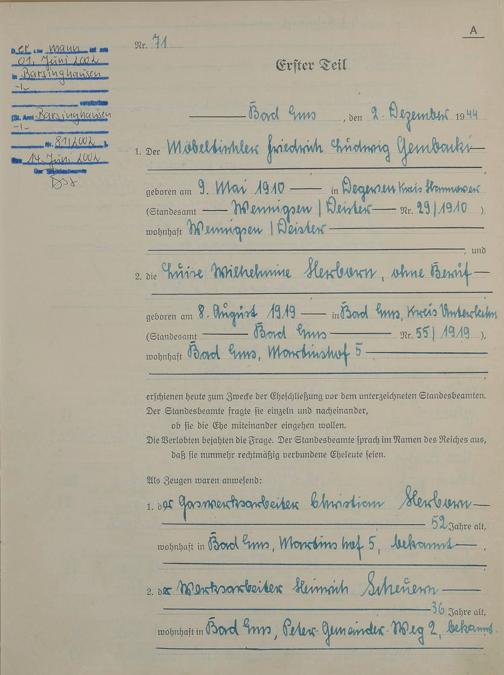 A
Nr. 71
Der Mann ist am
01. Juni 2002
in Barsinghausen
-/-
verstorben
(St. Amt Barsinghausen
-/-
Nr. 81/2002 ).
Den 14. Juni 2002
Der Standesbeamte
Erster Teil
Bad Ems, den 2. Dezember 1944
1. Der Möbeltischler Friedrich Ludwig Gembacki
geboren am 9. Mai 1910 in Degersen Kreis Hannover
(Standesamt Wennigsen / Deister Nr. 29/1910 ),
wohnhaft Wennigsen / Deister
, und
2. die Luise Wilhelmine Herborn, ohne Beruf
geboren am 8. August 1919 in Bad Ems, Kreis Unterlahn
(Standesamt Bad Ems Nr. 55/1919 ),
wohnhaft Bad Ems, Martinshof 5
erschienen heute zum Zwecke der Eheschließung vor dem unterzeichneten Standesbeamten.
Der Standesbeamte fragte sie einzeln und nacheinander,
ob sie die Ehe miteinander eingehen wollen.
Die Verlobten bejahten die Frage. Der Standesbeamte sprach im Namen des Reiches aus,
daß sie nunmehr rechtmäßig verbundene Eheleute seien.
Als Zeugen waren anwesend:
1. der Gaswerksarbeiter Christian Herborn
52 Jahre alt,
wohnhaft in Bad Ems, Martinshof 5, bekannt.
2. der Werksarbeiter Heinrich Scheuern
36 Jahre alt,
wohnhaft in Bad Ems, Peter-Gemeinder-Weg 2, bekannt.